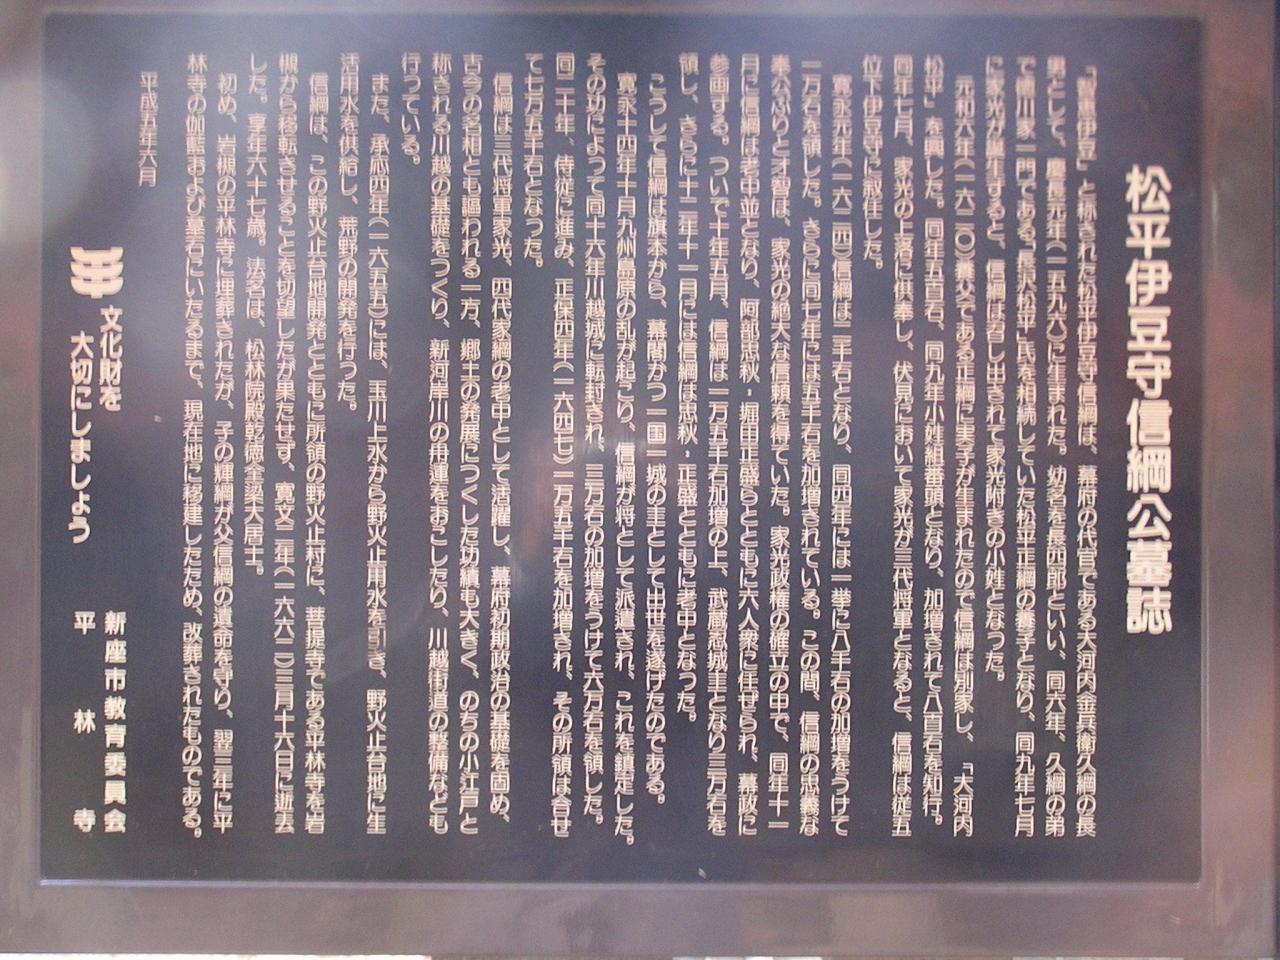 松平伊豆守信綱公墓誌
「智恵伊豆」と称された松平伊豆守信綱は、幕府の代官である大河内金兵衛久綱の長
男として、慶長元年(一五九六)に生まれた。幼名を長四郎といい、同六年、久綱の弟
で徳川家一門である「長沢松平」氏を相続していた松平正綱の養子となり、同九年七月
に家光が誕生すると、信綱は召し出されて家光附きの小姓となった。
元和六年(一六二〇)養父である正綱に実子が生まれたので信綱は別家し、「大河内
松平」を興した。同年五百石、同九年小姓組番頭となり、加増されて八百石を知行。
同年七月、家光の上洛に供奉し、伏見において家光が三代将軍となると、信綱は従五
位下伊豆守に叙任した。
寛永元年(一六二四)信綱は二千石となり、同四年には一挙に八千石の加増をうけて
一万石を領した。さらに同七年には五千石を加増されている。この間、信綱の忠義な
奉公ぶりと才智は、家光の絶大な信頼を得ていた。家光政権の確立の中で、同年十一
月に信綱は老中並となり、阿部忠秋・堀田正盛らとともに六人衆に任ぜられ、幕政に
参画する。ついで十年五月、信綱は一万五千石加増の上、武蔵忍城主となり三万石を
領し、さらに十二年十一月には信綱は忠秋・正盛とともに老中となった。
こうして信綱は旗本から、幕閣かつ一国一城の主として出世を遂げたのである。
寛永十四年十月九州島原の乱が起こり、信綱が将として派遣され、これを鎮定した。
その功によって同十六年川越城に転封され、三万石の加増をうけて六万石を領した。
同二十年、侍従に進み、正保四年(一六四七)一万五千石を加増され、その所領は合せ
て七万五千石となった。
信綱は三代将軍家光、四代家綱の老中として活躍し、幕府初期政治の基礎を固め、
古今の名相とも謳われる一方、郷土の発展につくした功績も大きく、のちの小江戸と
称される川越の基礎をつくり、新河岸川の舟運をおこしたり、川越街道の整備なども
行っている。
また、承応四年(一六五五)には、玉川上水から野火止用水を引き、野火止台地に生
活用水を供給し、荒野の開発を行った。
信綱は、この野火止台地開発とともに所領の野火止村に、菩提寺である平林寺を岩
槻から移転させることを切望したが果たせず、寛文二年(一六六二)三月十六日に逝去
した。享年六十七歳。法名は、松林院殿乾徳全梁大居士。
初め、岩槻の平林寺に埋葬されたが、子の輝綱が父信綱の遺命を守り、翌三年に平
林寺の伽藍および墓石にいたるまで、現在地に移建したため、改葬されたものである。
平成五年六月
文化財を
大切にしましょう
新座市教育委員会
平林寺